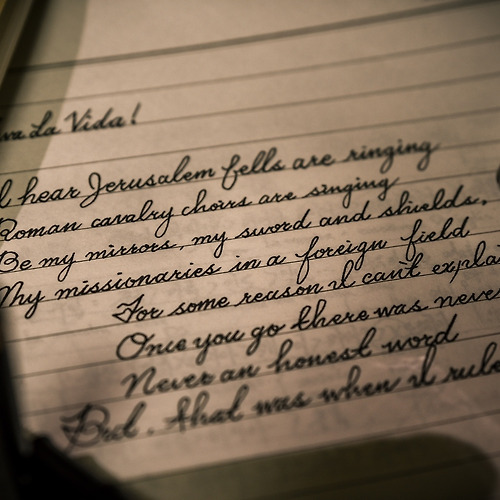 Viva La Vida!
I hear Jerusalem fells are ringing
Roman cavalry choirs are singing
Be my mirrors, my sword and shields,
My missionaries in a foreign field
For some reason I can't expla
Once you go there was neve
Never an honest word
But. that was when I rule